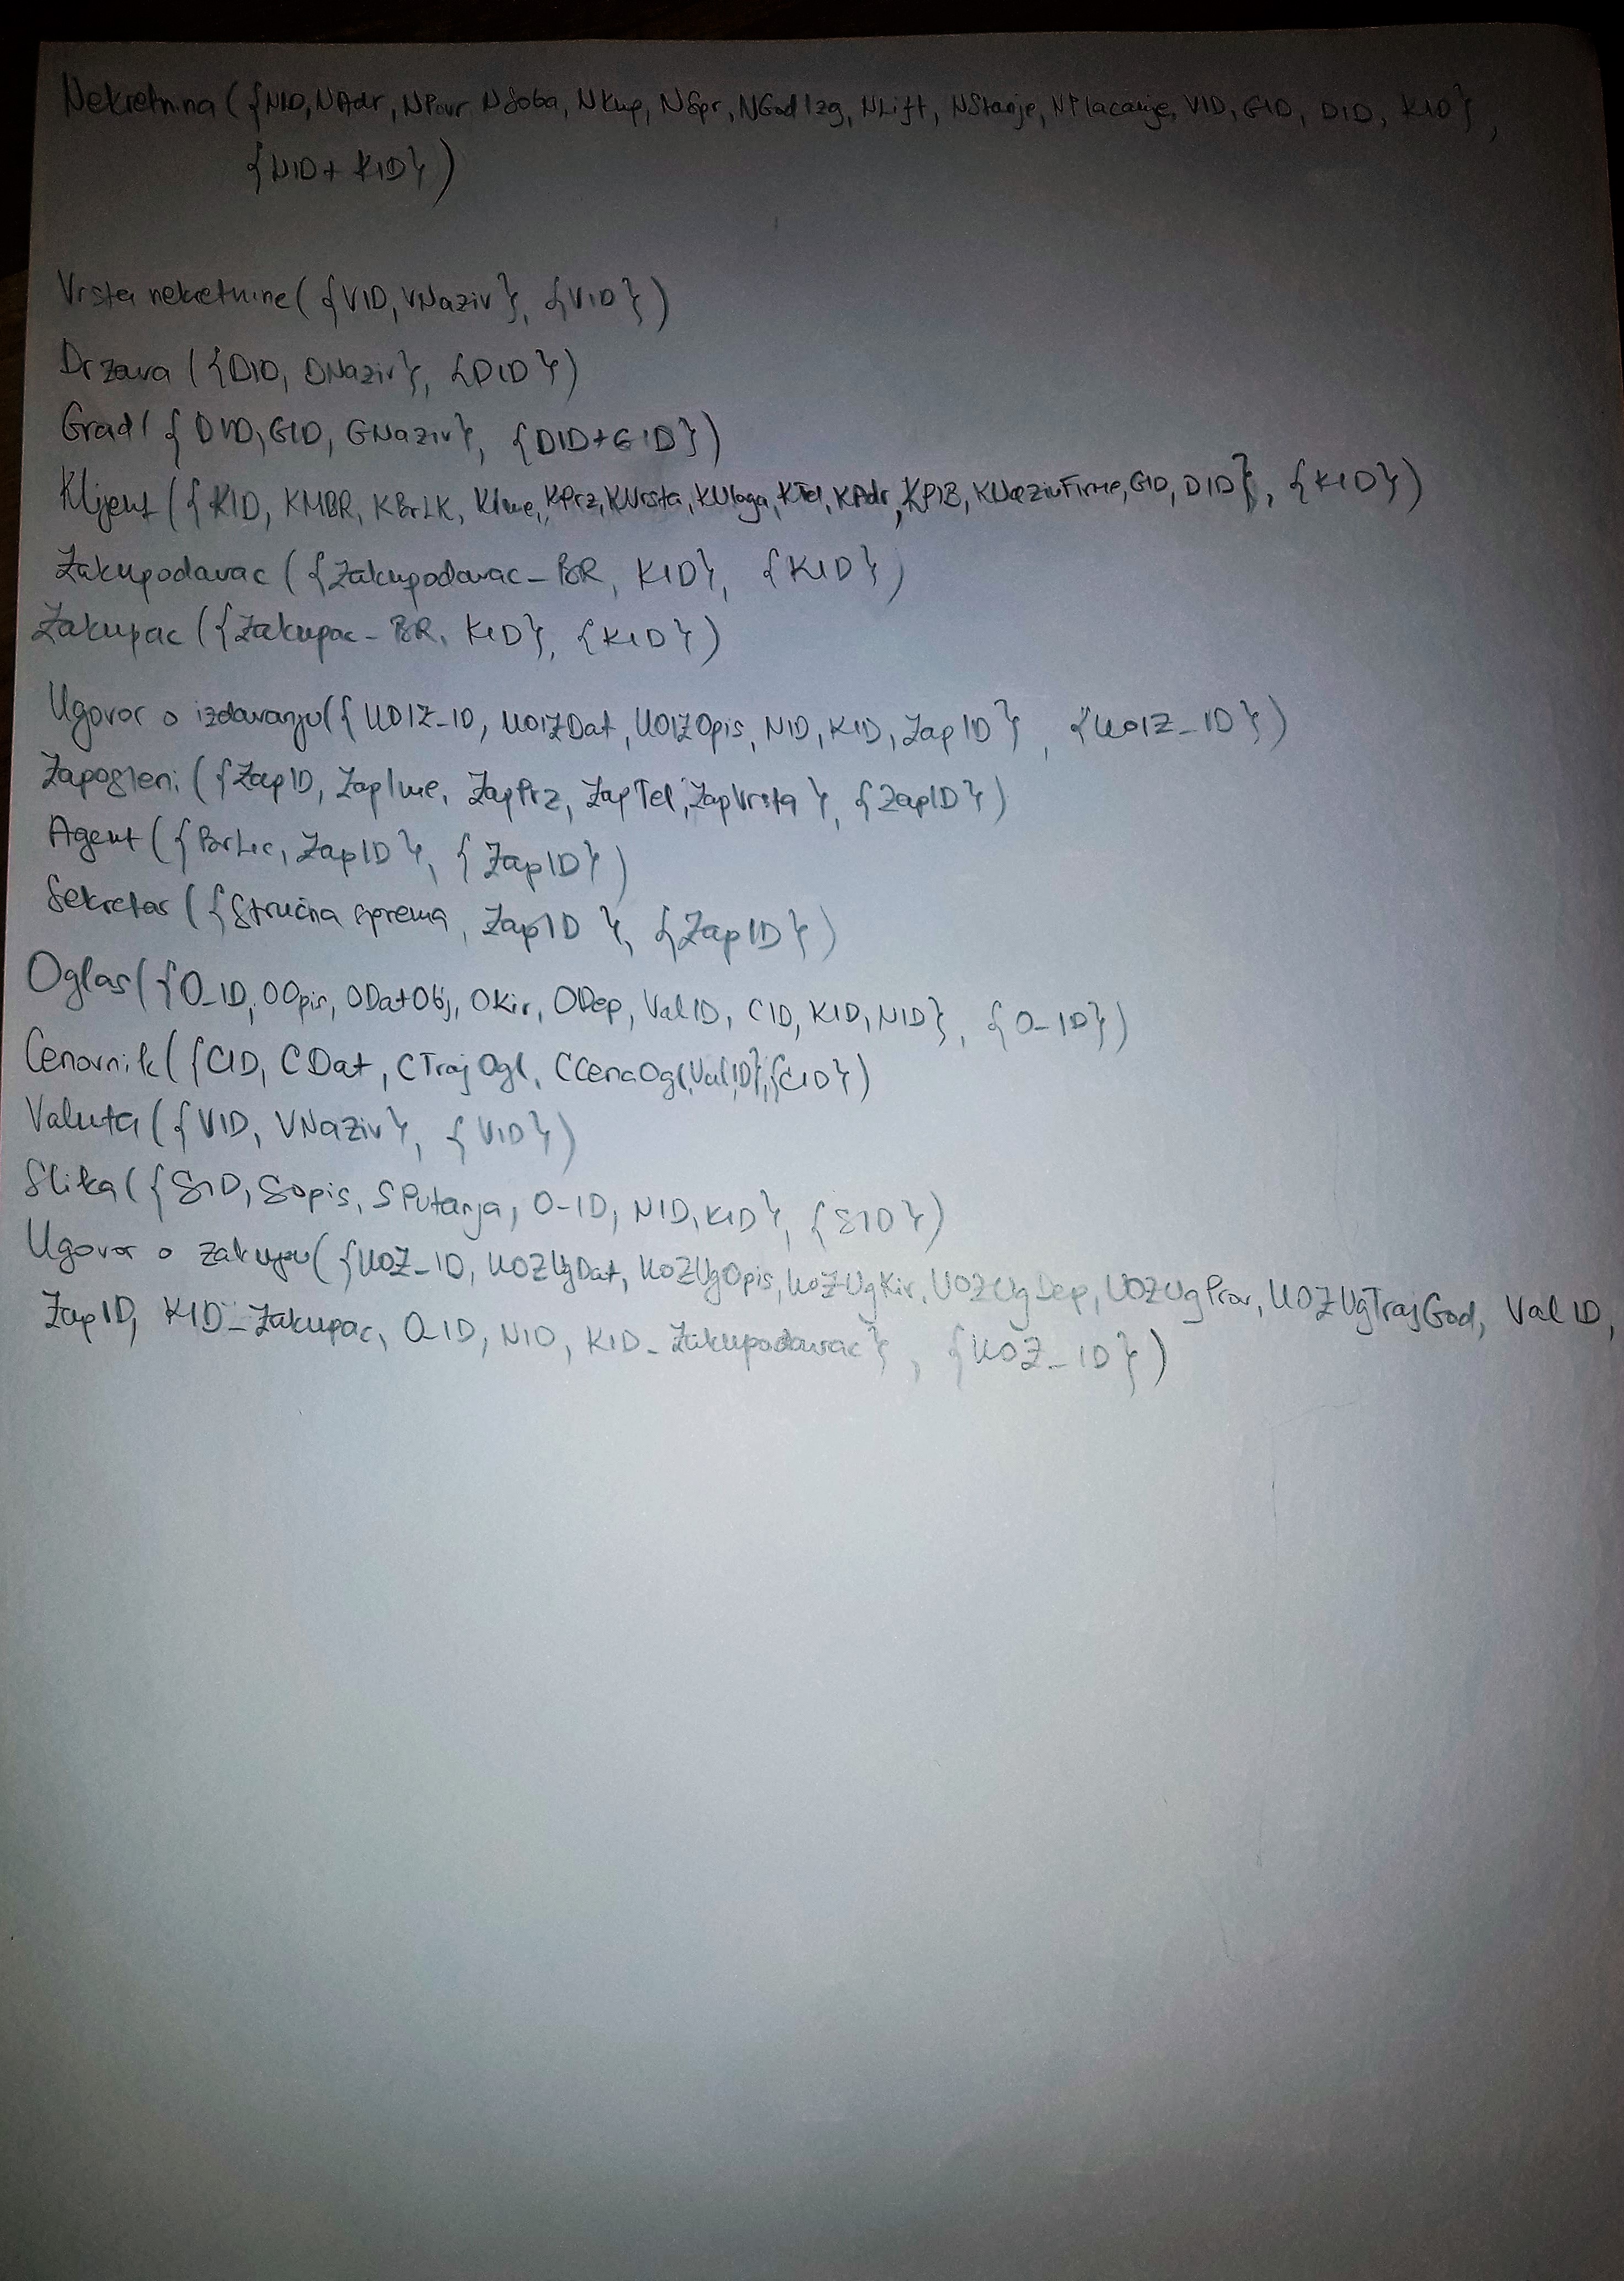 Nekretnina ({NID, NAdr, NPovr, NSoba, NKup, NSpr, NGodIzg, NLift, NStanje, NPlacanje, VID, GID, DID, KID},
{NID+KID})
Vrsta nekretnine ({VID, VNaziv}, {VID})
Drzava ({DID, DNaziv}, {DID})
Grad({DID, GID, GNaziv}, {DID+GID})
Klijent ({KID, KMBR, KBrLK, KIme, KPrz, KVrsta, KUloga, KTel, KAdr, KPIB, KNazivFirme, GID, DID}, {KID})
Zakupodavac ({Zakupodavac_BR, KID}, {KID})
Zakupac ({Zakupac_BR, KID}, {KID})
Ugovor o izdavanju({UOIZ_ID, UOIZDat, UOIZOpis, NID, KID, ZapID}, {UOIZ_ID})
Zaposleni ({ZapID, ZapIme, ZapPrz, ZapTel, ZapVrsta}, {ZapID})
Agent ({BrLic, ZapID}, {ZapID})
Sekretar ({Stručna sprema, ZapID}, {ZapID})
Oglas({O_ID, OOpis, ODatObj, OKir, ODep, ValID, CID, KID, NID}, {O_ID})
Cenovnik({CID, CDat, CTrajOgl, CCenaOgl, ValID},{CID})
Valuta({VID, VNaziv}, {VID})
Slika({SID, SOpis, SPutanja, O_ID, NID, KID}, {SID})
Ugovor o zakupu({UOZ_ID, UOZUgDat, UOZUgOpis, UOZUgKir, UOZUgDep, UOZUgProv, UOZUgTrajGod, ValID,
ZapID, KID_Zakupac, O_ID, NID, KID_Zakupodavac}, {UOZ_ID})